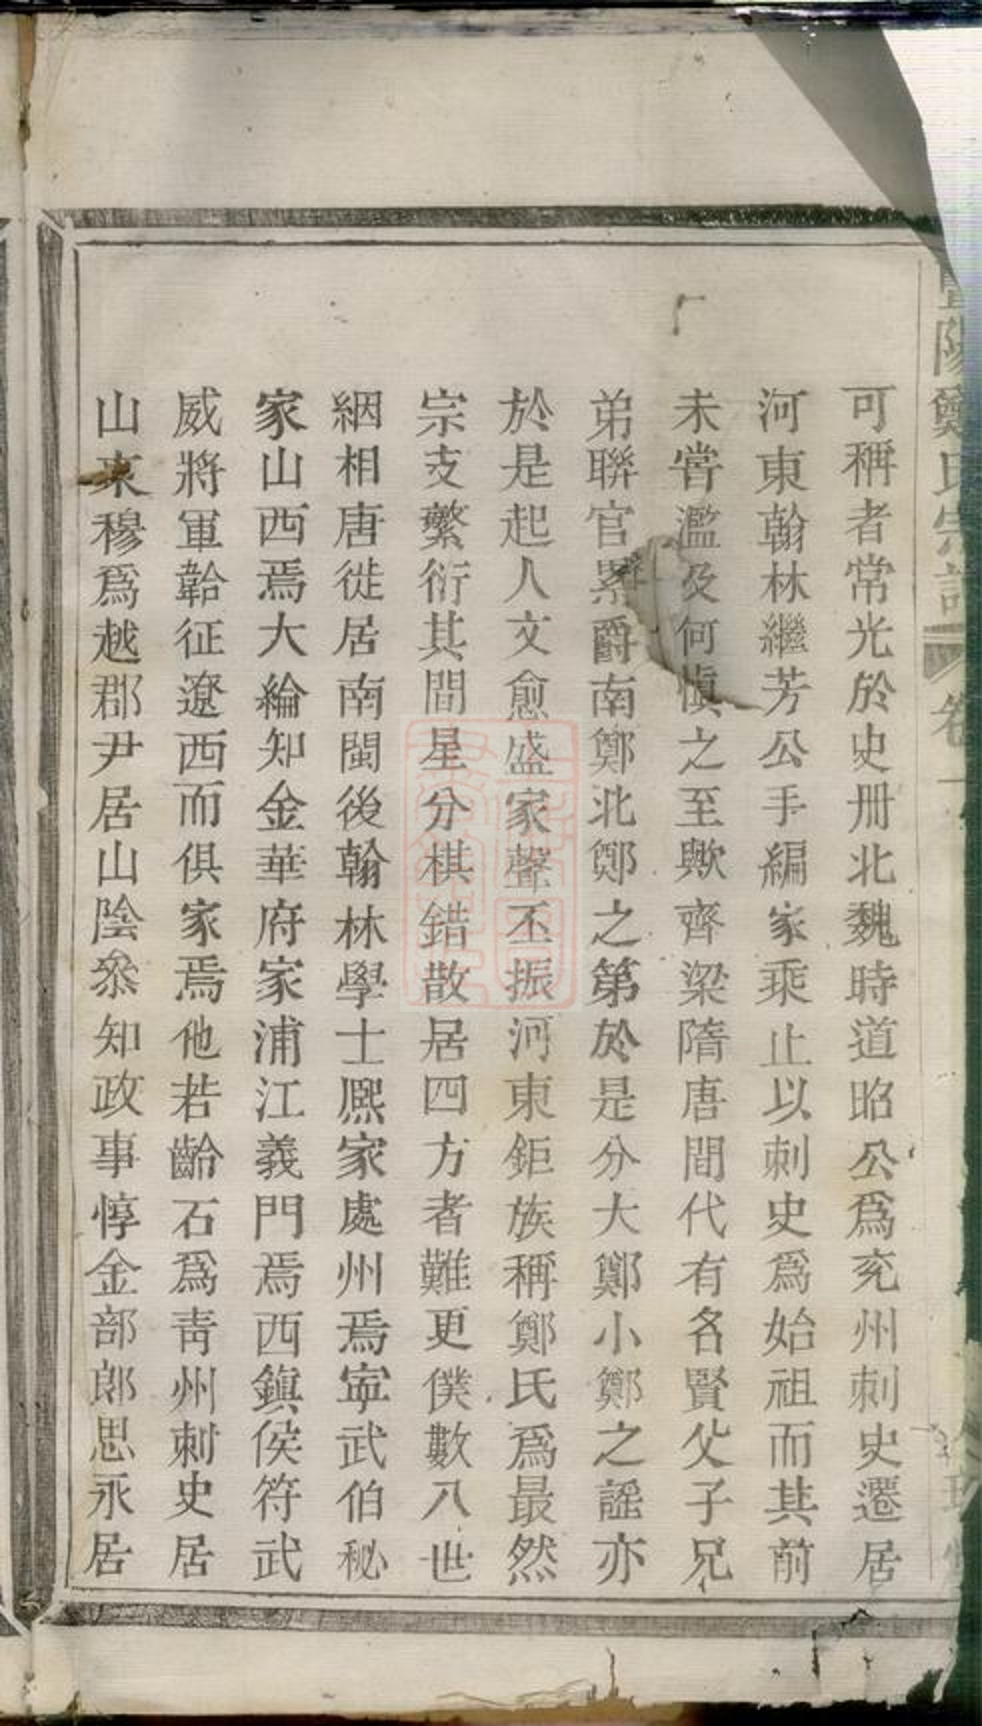 陽鄭氏宗譜 卷一
可稱者常光於史冊北魏時道昭公爲兖州刺史遷居
河東翰林繼芳公手編家乘止以刺史爲始祖而其前
未嘗濫及何慎之至歟齊梁隋唐間代有名賢父子兄
弟聯官累爵南鄭北鄭之第於是分大鄭小鄭之謡亦
於是起人文愈盛家聲丕振河東鉅族稱鄭氏爲最然
宗支蘩衍其間星分棋錯散居四方者難更僕數八世
絪相唐徙居南閩後翰林學士熈家處州焉寕武伯秘
家山西焉大綸知金華府家浦江義門焉西鎮侯符武
威將軍韐征遼西而俱家焉他若齡石爲靑州刺史居
山東穆爲越郡尹居山陰叅知政事惇金部郎思永居